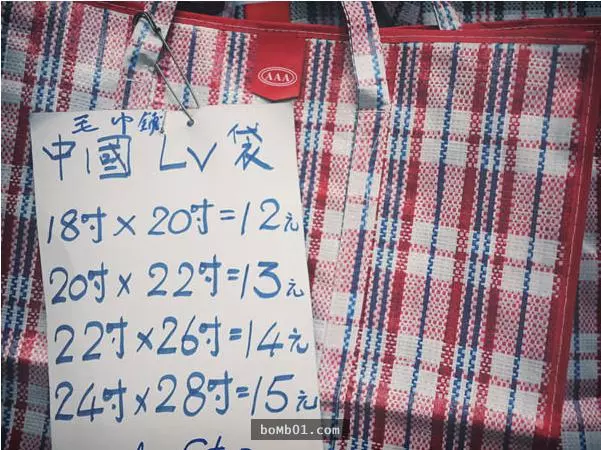 AAA
毛巾舖
中國 LV 袋
18吋×20吋=12元
20吋×22吋=13元
22吋×26吋=14元
24吋×28吋=15元
boMb01.com